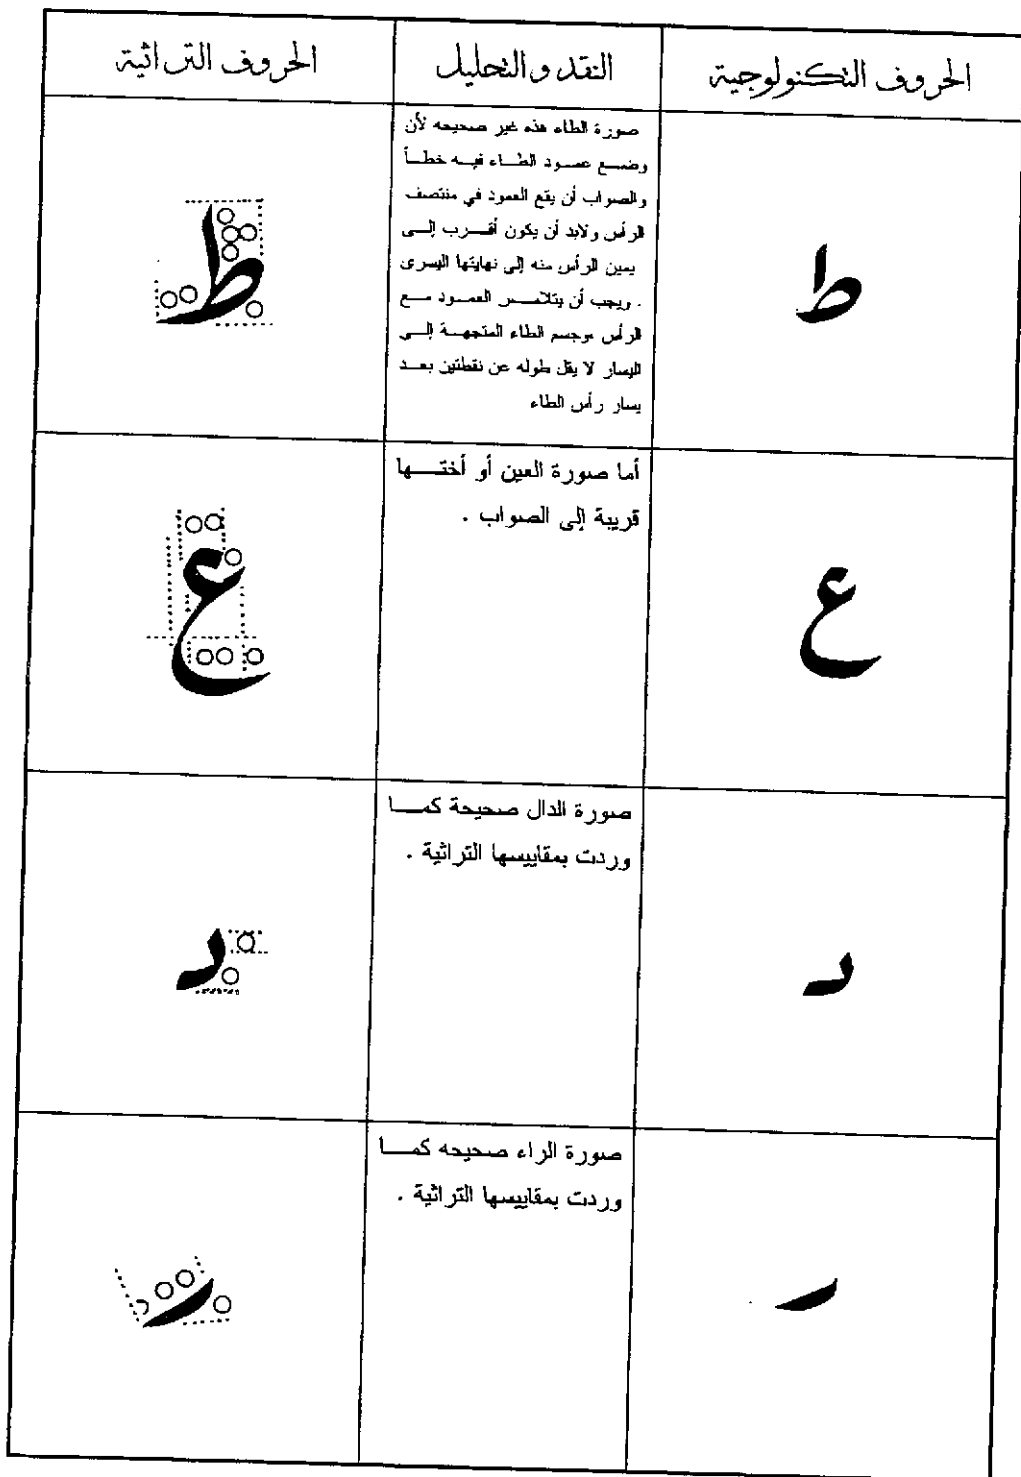 الحروف التكنولوجية
النقد والتحليل
الحروف التراثية
ط
صورة الطاء هذه غير صحيحه لأن
وضع عمود الطاء فيه خطأ
والصواب أن يقع العمود في منتصف
الرأس ولابد أن يكون أقرب إلى
يمين الرأس منه إلى نهايتها اليسرى
. ويجب أن يتلامس العمود مع
الرأس وجسم الطاء المتجهة إلى
اليسار لا يقل طوله عن نقطتين بعد
يسار رأس الطاء
ط
ع
أما صورة العين أو أختها
قريبة إلى الصواب .
ع
د
صورة الدال صحيحة كما
وردت بمقاييسها التراثية .
د
ر
صورة الراء صحيحه كما
وردت بمقاييسها التراثية .
ر